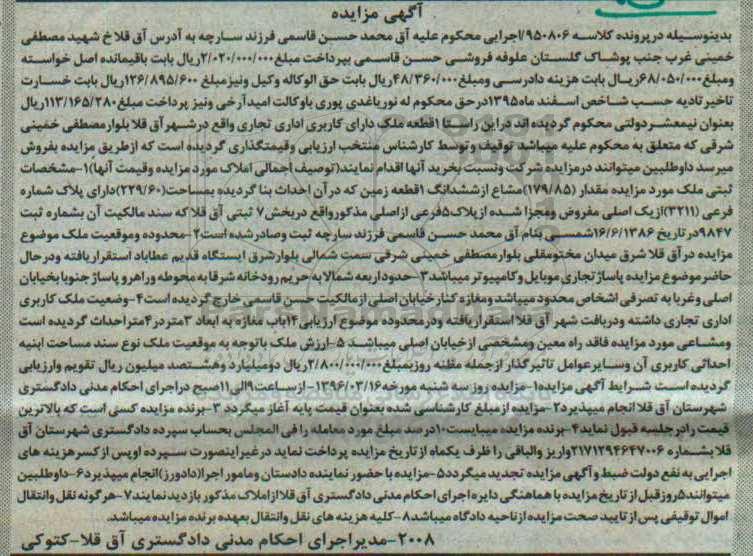 آگهی مزایده
بدینوسیله در پرونده کلاسه ۹۵۰۸۰۶/اجرایی محکوم علیه آق محمد حسن قاسمی فرزند سارچه به آدرس آق قلا خ شهید مصطفی
خمینی غرب جنب پوشاک گلستان علوفه فروشی حسن قاسمی بپرداخت مبلغ ۲/۰۲۰/۰۰۰/۰۰۰ریال بابت باقیمانده اصل خواسته
ومبلغ ۶۸/۰۵۰/۰۰۰ریال بابت هزینه دادرسی ومبلغ ۴۸/۳۶۰/۰۰۰ریال بابت حق الوکاله وکیل ونیز مبلغ ۱۲۶/۸۹۵/۶۰۰ریال بابت خسارت
تاخیر تادیه حسب شاخص اسفند ماه ۱۳۹۵در حق محکوم له نوریاغدی پوری باوکالت امید آرخی ونیز پرداخت مبلغ ۱۱۳/۱۶۵/۲۸۰ریال
بعنوان نیمعشر دولتی محکوم گردیده اند در این راستا ۱قطعه ملک دارای کاربری اداری تجاری واقع در شهر آق قلا بلوار مصطفی خمینی
شرقی که متعلق به محکوم علیه میباشد توقیف و توسط کارشناس منتخب ارزیابی وقیمتگذاری گردیده است که از طریق مزایده بفروش
میرسد داوطلبین میتوانند در مزایده شرکت ونسبت بخرید آنها اقدام نمایند(توصیف اجمالی املاک مورد مزایده وقیمت آنها)۱-مشخصات
ثبتی ملک مورد مزایده مقدار (۱۷۹/۸۵)مشاع از ششدانگ ۱قطعه زمین که در آن احداث بنا گردیده بمساحت(۲۲۹/۶۰)دارای پلاک شماره
فرعی (۳۲۱۱)از یک اصلی مفروض ومجزا شده از پلاک۵فرعی از اصلی مذکور واقع در بخش ۷ ثبتی آق قلا که سند مالکیت آن بشماره ثبت
۹۸۴۷در تاریخ ۱۶/۶/۱۳۸۶شمسی بنام آق محمد حسن قاسمی فرزند سارچه ثبت وصادر شده است۲-محدوده وموقعیت ملک موضوع
مزایده در آق قلا شرق میدان مختومقلی بلوار مصطفی خمینی شرقی سمت شمالی بلوار شرق ایستگاه قدیم عطاباد استقرار یافته ودر حال
حاضر موضوع مزایده پاساژ تجاری موبایل و کامپیوتر میباشد۳-حدود اربعه شمالا به حریم رودخانه شرقا به محوطه وراهرو پاساژ جنوبا بخیابان
اصلی وغربا به تصرفی اشخاص محدود میباشد ومغازه کنار خیابان اصلی از مالکیت حسن قاسمی خارج گردیده است۴-وضعیت ملک کاربری
اداری تجاری داشته ودربافت شهر آق قلا استقرار یافته ودر محدوده موضوع ارزیابی ۱۲باب مغازه به ابعاد ۳متر در ۴متر احداث گردیده است
ومشاعی مورد مزایده فاقد راه معین ومشخصی از خیابان اصلی میباشد ۵-ارزش ملک باتوجه به موقعیت ملک نوع سند مساحت ابنیه
احداثی کاربری آن وسایر عوامل تاثیرگذار از جمله مظنه روز بمبلغ ۲/۸۰۰/۰۰۰/۰۰۰ریال دو میلیارد وهشتصد میلیون ریال تقویم وارزیابی
گردیده است شرایط آگهی مزایده۱-مزایده روز سه شنبه مورخه ۱۳۹۶/۰۳/۱۶-از ساعت ۹الی۱۱صبح در اجرای احکام مدنی دادگستری
شهرستان آق قلا انجام میپذیرد۲-مزایده از مبلغ کارشناسی شده بعنوان قیمت پایه آغاز میگردد ۳-برنده مزایده کسی است که بالاترین
قیمت را در جلسه قبول نماید۴-برنده مزایده میبایست ۱۰درصد مبلغ مورد معامله را فی المجلس بحساب سپرده دادگستری شهرستان آق
قلا بشماره ۲۱۷۱۲۹۴۶۴۷۰۰۶واریز والباقی را ظرف یکماه از تاریخ مزایده پرداخت نماید در غیراینصورت سپرده او پس از کسر هزینه های
اجرایی به نفع دولت ضبط و آگهی مزایده تجدید میگردد۵-مزایده با حضور نماینده دادستان ومامور اجرا(دادورز)انجام میپذیرد۶-داوطلبین
میتوانند۵روز قبل از تاریخ مزایده با هماهنگی دایره اجرای احکام مدنی دادگستری آق قلا از املاک مذکور بازدید نمایند۷-هرگونه نقل وانتقال
اموال توقیفی پس از تایید صحت مزایده از ناحیه دادگاه میباشد۸-کلیه هزینه های نقل وانتقال بعهده برنده مزایده میباشد.
۲۰۰۸-مدیر اجرای احکام مدنی دادگستری آق قلا-کتوکی